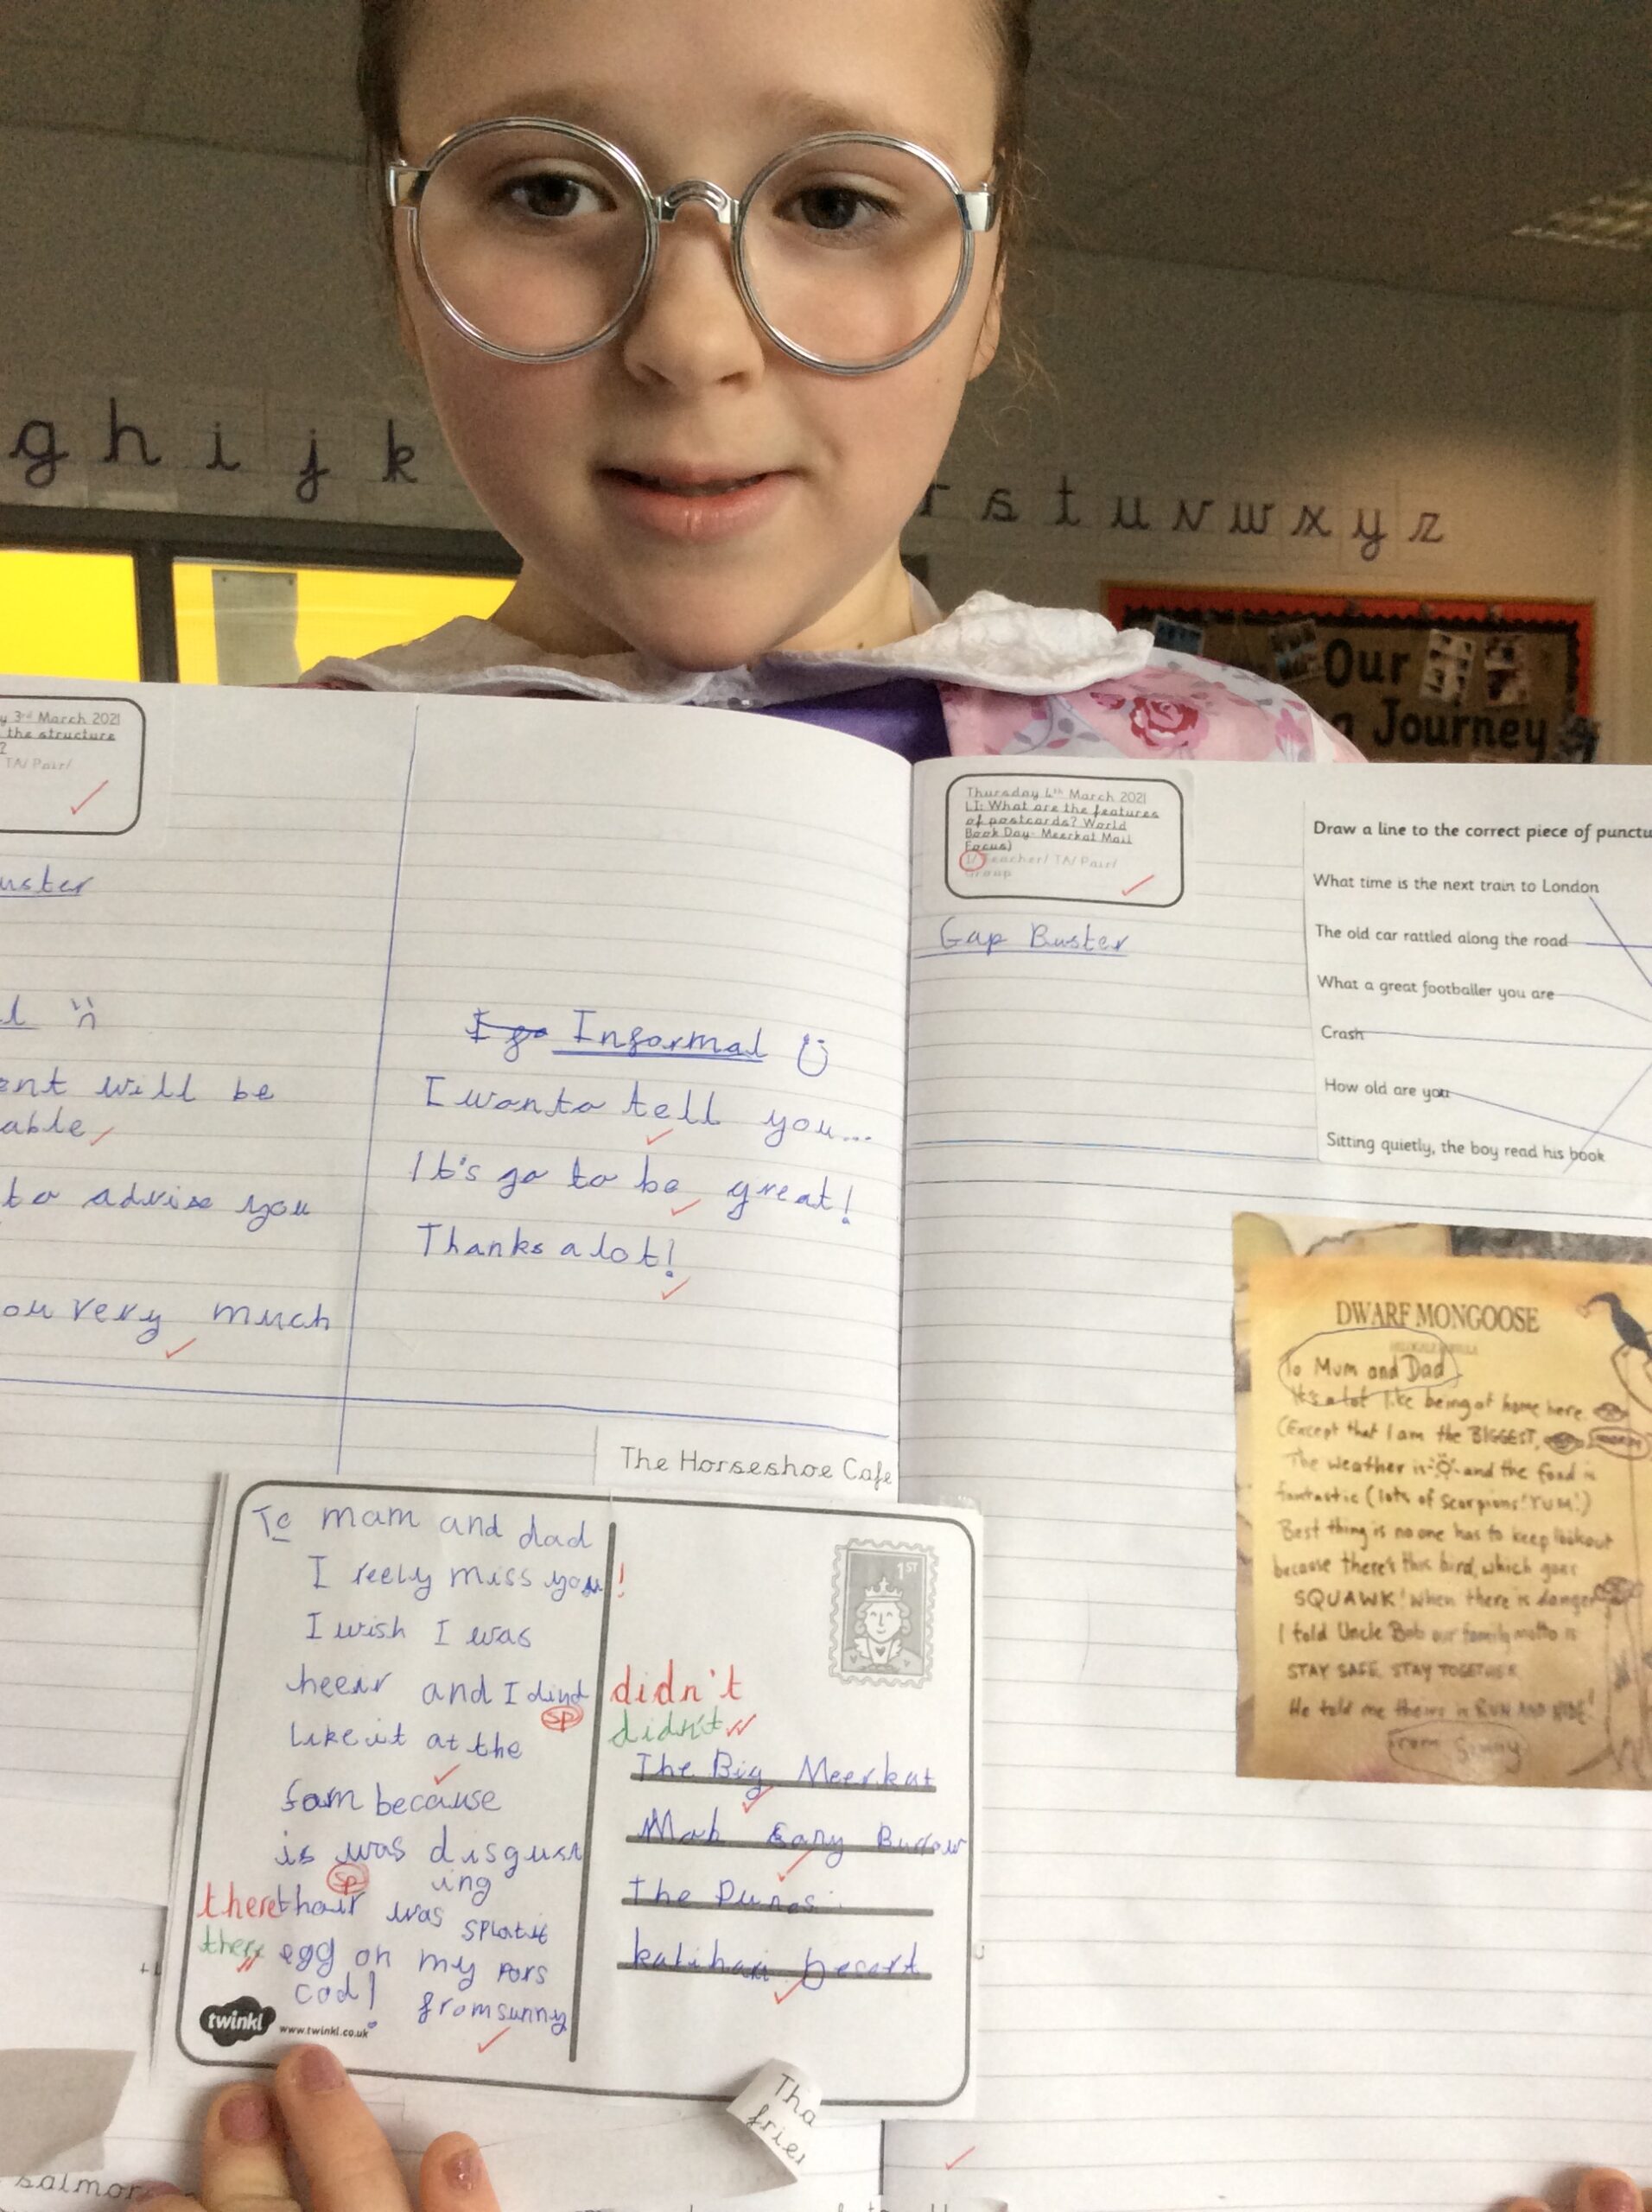 g h i j k
r s t u v w x y z
Our
Journey
y 3rd March 2021
the structure
?
TA/ Pair/
uster
ent will be
able
to advise you
ou very much
I go Informal
I wanto tell you...
It's go to be great!
Thanks a lot!
Thursday 4th March 2021
LI: What are the features
of postcards? World
Book Day- Meerkat Mail
Focus)
I/ Teacher/ TA/ Pair/
Group
Gap Buster
Draw a line to the correct piece of punctu
What time is the next train to London
The old car rattled along the road
What a great footballer you are
Crash
How old are you
Sitting quietly, the boy read his book
DWARF MONGOOSE
To Mum and Dad
It's a lot like being at home here
(Except that I am the BIGGEST,
The weather is and the food is
fantastic (lots of Scorpions! YUM!)
Best thing is no one has to keep lookout
because there's this bird, which goes
SQUAWK! when there is danger
I told Uncle Bob our family motto is
STAY SAFE, STAY TOGETHER
He told me theirs is RUN AND HIDE!
from Sunny
The Horseshoe Cafe
To mam and dad
I reely miss you!
I wish I was
heeir and I dind
sp
like it at the
fam because
is was disgust
ing
sp
there thair was splatit
there egg on my pors
cad!
from sunny
twinkl
www.twinkl.co.uk
1ST
didn't
didn't
The Big Meerkat
Mob Sany Burrow
the Dunes
kalihari Desert
Tha
frie
salmo